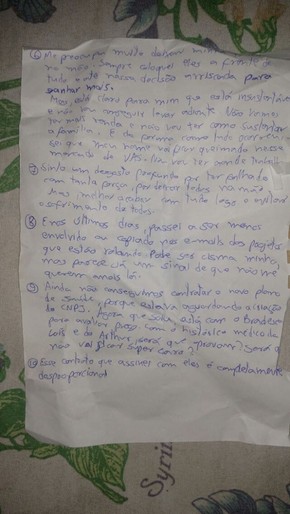 ⑥ Me preocupa muito deixar minha
na mão. Sempre coloquei eles a frente de
tudo e na nossa decisão arriscada para
ganhar mais.
Mas, está claro para mim que está insustentável
e não vou conseguir levar adiante. Não vamos
ter mais renda e não vou ter como sustentar
a família. E do jeito como tudo
sei que meu nome vai por queimado nesse
mercado de vou ter onde
⑦ Sinto um desgosto profundo por ter falhado
com tanta força, por deixar todos na mão.
mas melhor acabar com tudo logo e
o sofrimento de todos.
⑧ Esses últimos dias, passei a ser menos
envolvido ou copiado nos e-mails dos projetos
que estão rolando. Pode ser cisma minha,
mas parece já um sinal de que não me
querem mais lá.
⑨ Ainda não conseguimos contratar o novo plano
de saúde, porque estava aguardando a criação
do CNPJ. Agora que saiu está com o Bradesco
para avaliar mas com o histórico médico da
e do Arthur, será que aprovam? será q
não vai ficar super caro?
⑩ Esse contrato que assinei com eles é completamente
desproporcional
Syrin